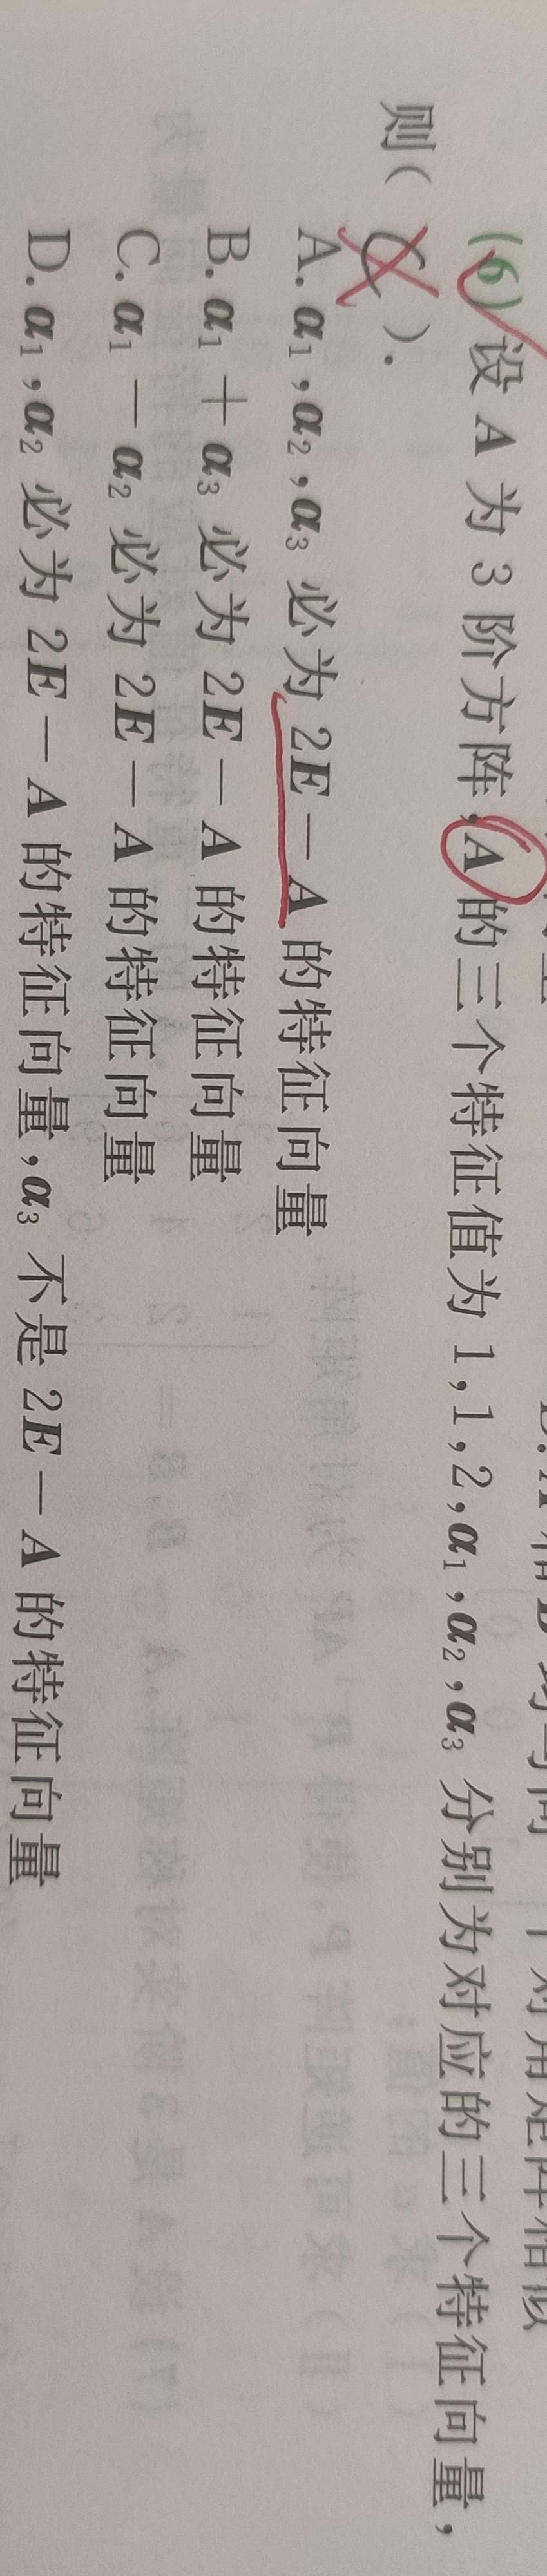 (6) 设 A 为 3 阶方阵,A 的三个特征值为 1,1,2,α₁,α₂,α₃ 分别为对应的三个特征向量,
则( C ).
A. α₁,α₂,α₃ 必为 2E－A 的特征向量
B. α₁＋α₃ 必为 2E－A 的特征向量
C. α₁－α₂ 必为 2E－A 的特征向量
D. α₁,α₂ 必为 2E－A 的特征向量,α₃ 不是 2E－A 的特征向量